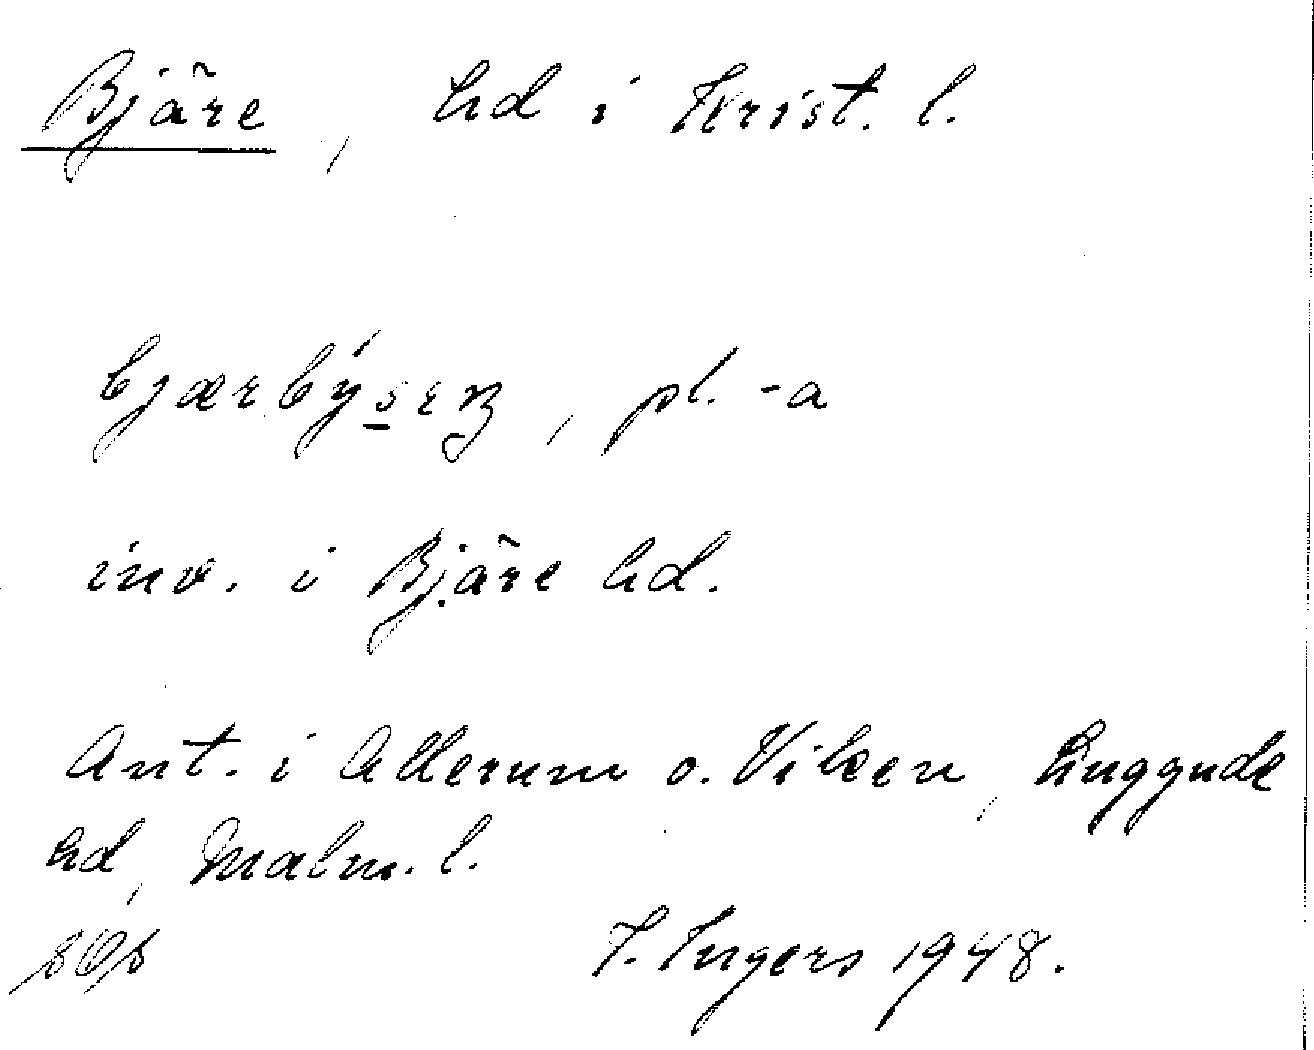 Bjäre, hd i Krist. l.
bjærbýserɳ, pl. -a
inv. i Bjäre hd.
Ant. i Allerum o. Viken, Luggude
hd, Malm. l.
I. Ingers 1948.